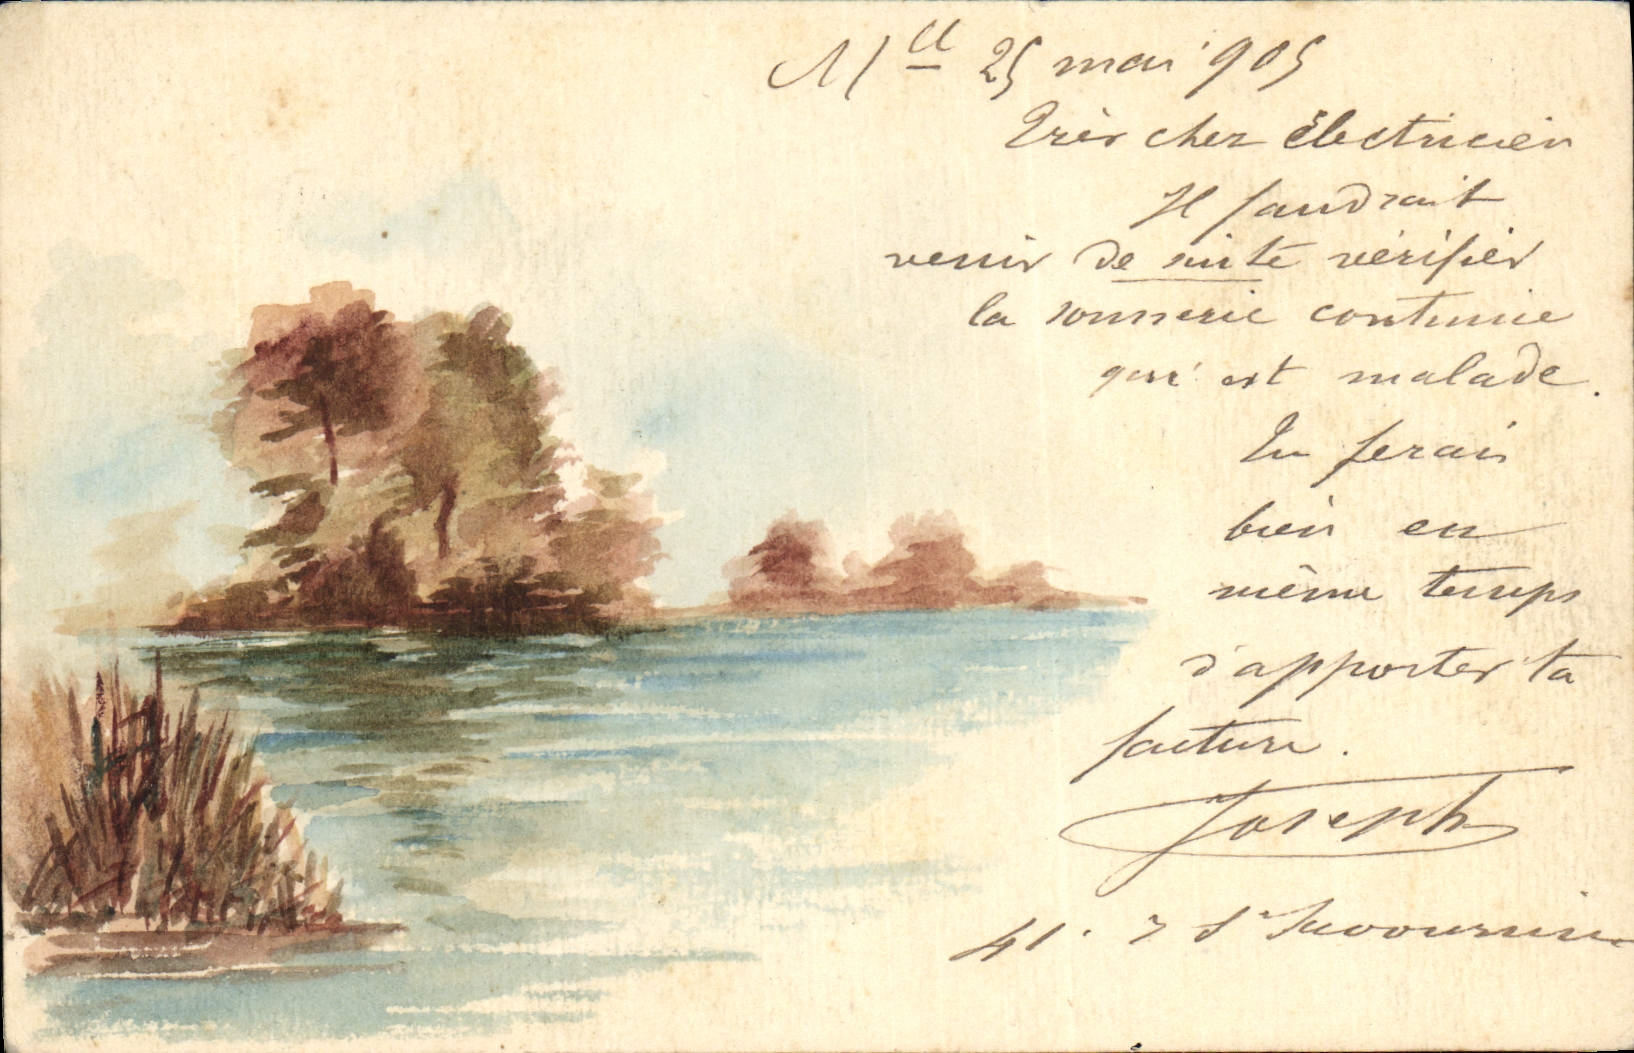 Mlle 25 mai 905
Très cher électricien
Il faudrait
venir de suite vérifier
la sonnerie continue
qui est malade.
Tu ferais
bien en
même temps
d'apporter ta
facture.
Joseph
41. r St Savournin